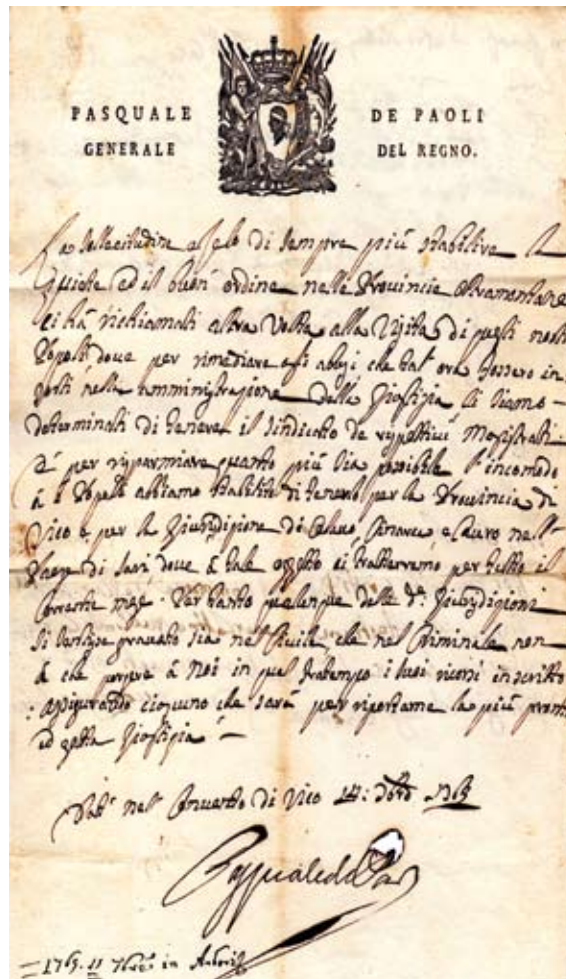 PASQUALE DE PAOLI
GENERALE DEL REGNO.
La sollecitudine e zelo di sempre più stabilire la
quiete ed il buon ordine nelle Provincie oltramontane
ci hà richiamati altra volta alla visita di quegli nostri
Popoli dove per rimediare agli abusi che tal' ora fossero in
sorti nella amministrazione della Giustizia, ci siamo
determinati di tenere il sindicato de rispettivi Magistrati
E per risparmiare quanto più sia possibile l'incomodo
à Popoli abbiamo stabilito di tenerlo per la Provincia di
Vico e per la Giurisdizione di Celavo, Cinarca, e Cauro nell'
di Sari dove à tale oggetto ci tratterremo per tutto il
corrente mese. Per tanto qualunque delle dte. Giurisdizioni
si sentisse gravato sia nel Civile, che nel Criminale non
à che porgere à Noi in quel fratempo i suoi ricorsi in scritto
assigurando ciascuno che sarà per riportarne la più pronta
ed esatta Giustizia
nel Convento di Vico 14:
Pasquale de Pao
1765. 11 in